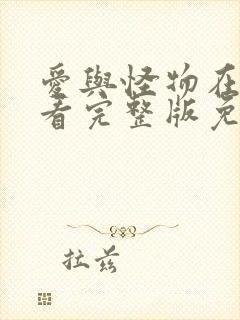 愛與怪物在
看完整版免
拉茲